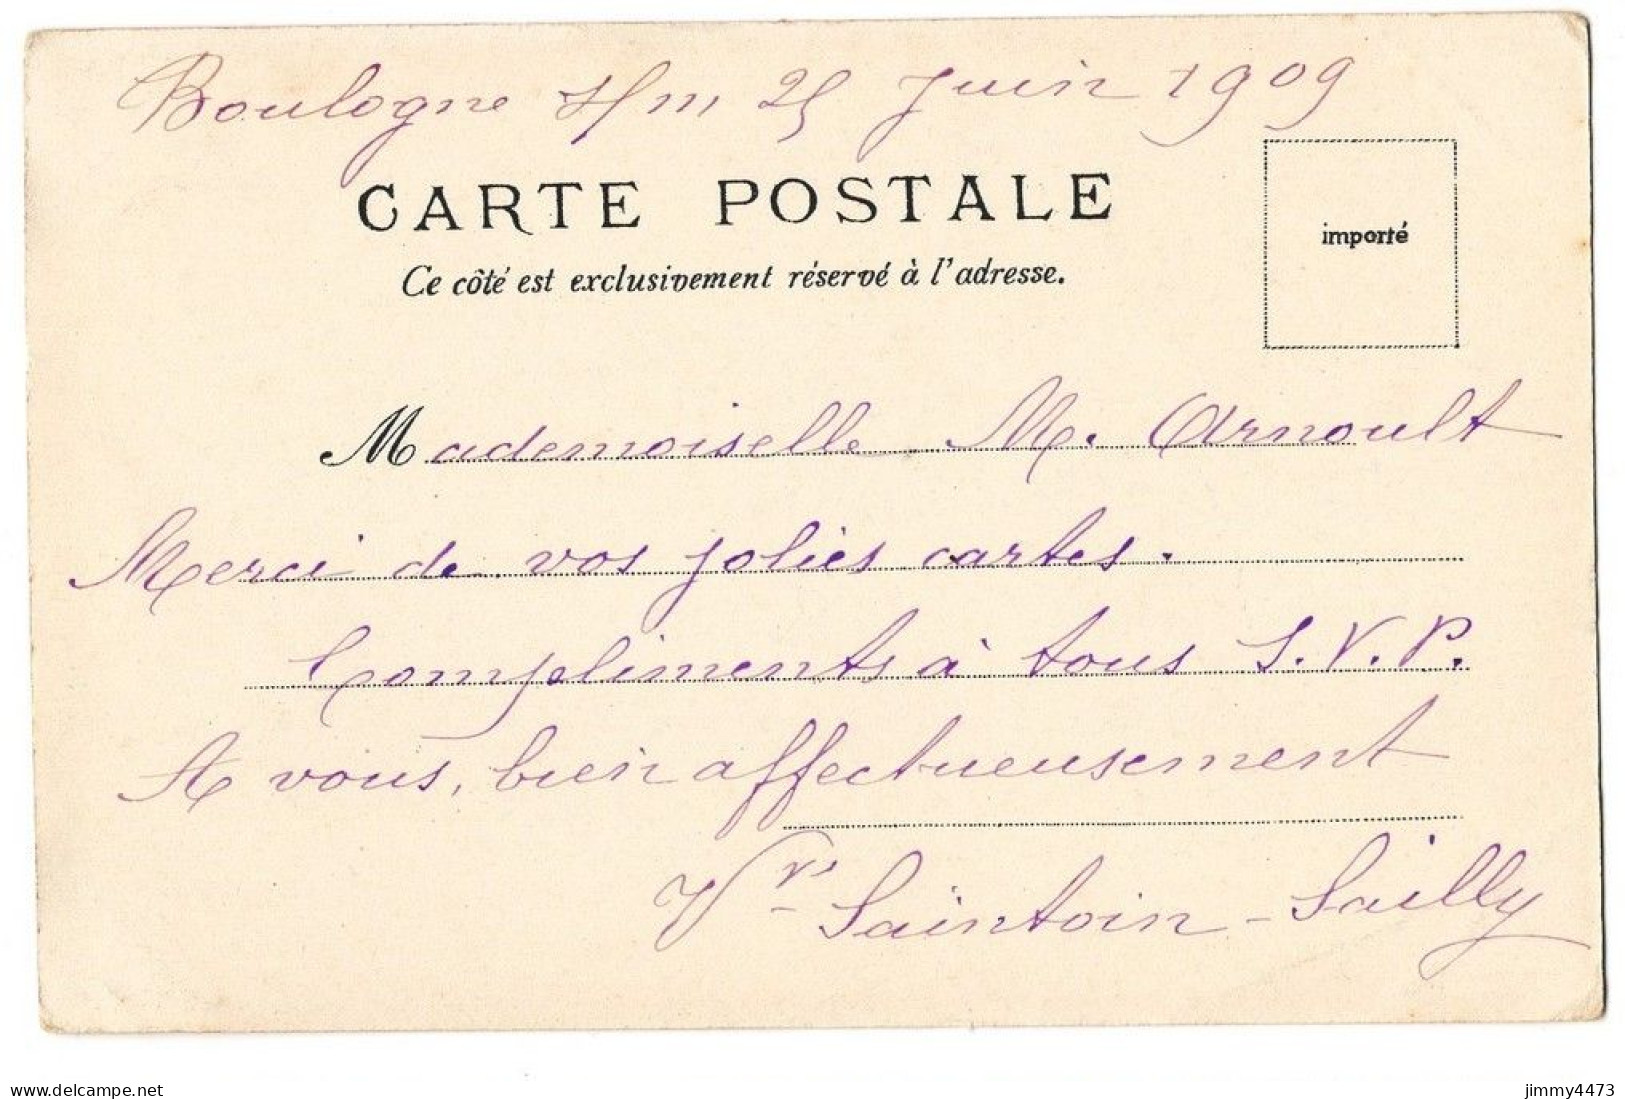 Boulogne s/m, 25 Juin 1909
CARTE POSTALE
importé
Ce côté est exclusivement réservé à l'adresse.
Mademoiselle M. Arnoult
Merci de vos jolies cartes.
Compliments à tous S.V.P.
A vous, bien affectueusement
Vve Saintoin-Sailly
www.delcampe.net
jimmy4473